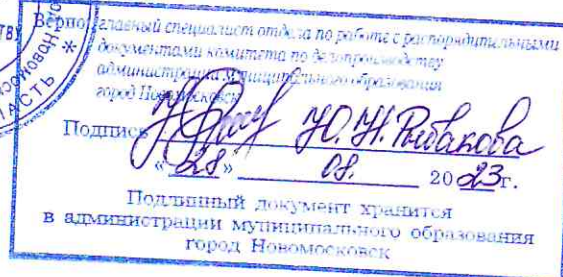 Верно: главный специалист отдела по работе с распорядительными
документами комитета по делопроизводству
администрации муниципального образования
город Новомосковск
Подпись Ю.Н. Рыбакова
«28» 08. 2023г.
Подлинный документ хранится
в администрации муниципального образования
город Новомосковск